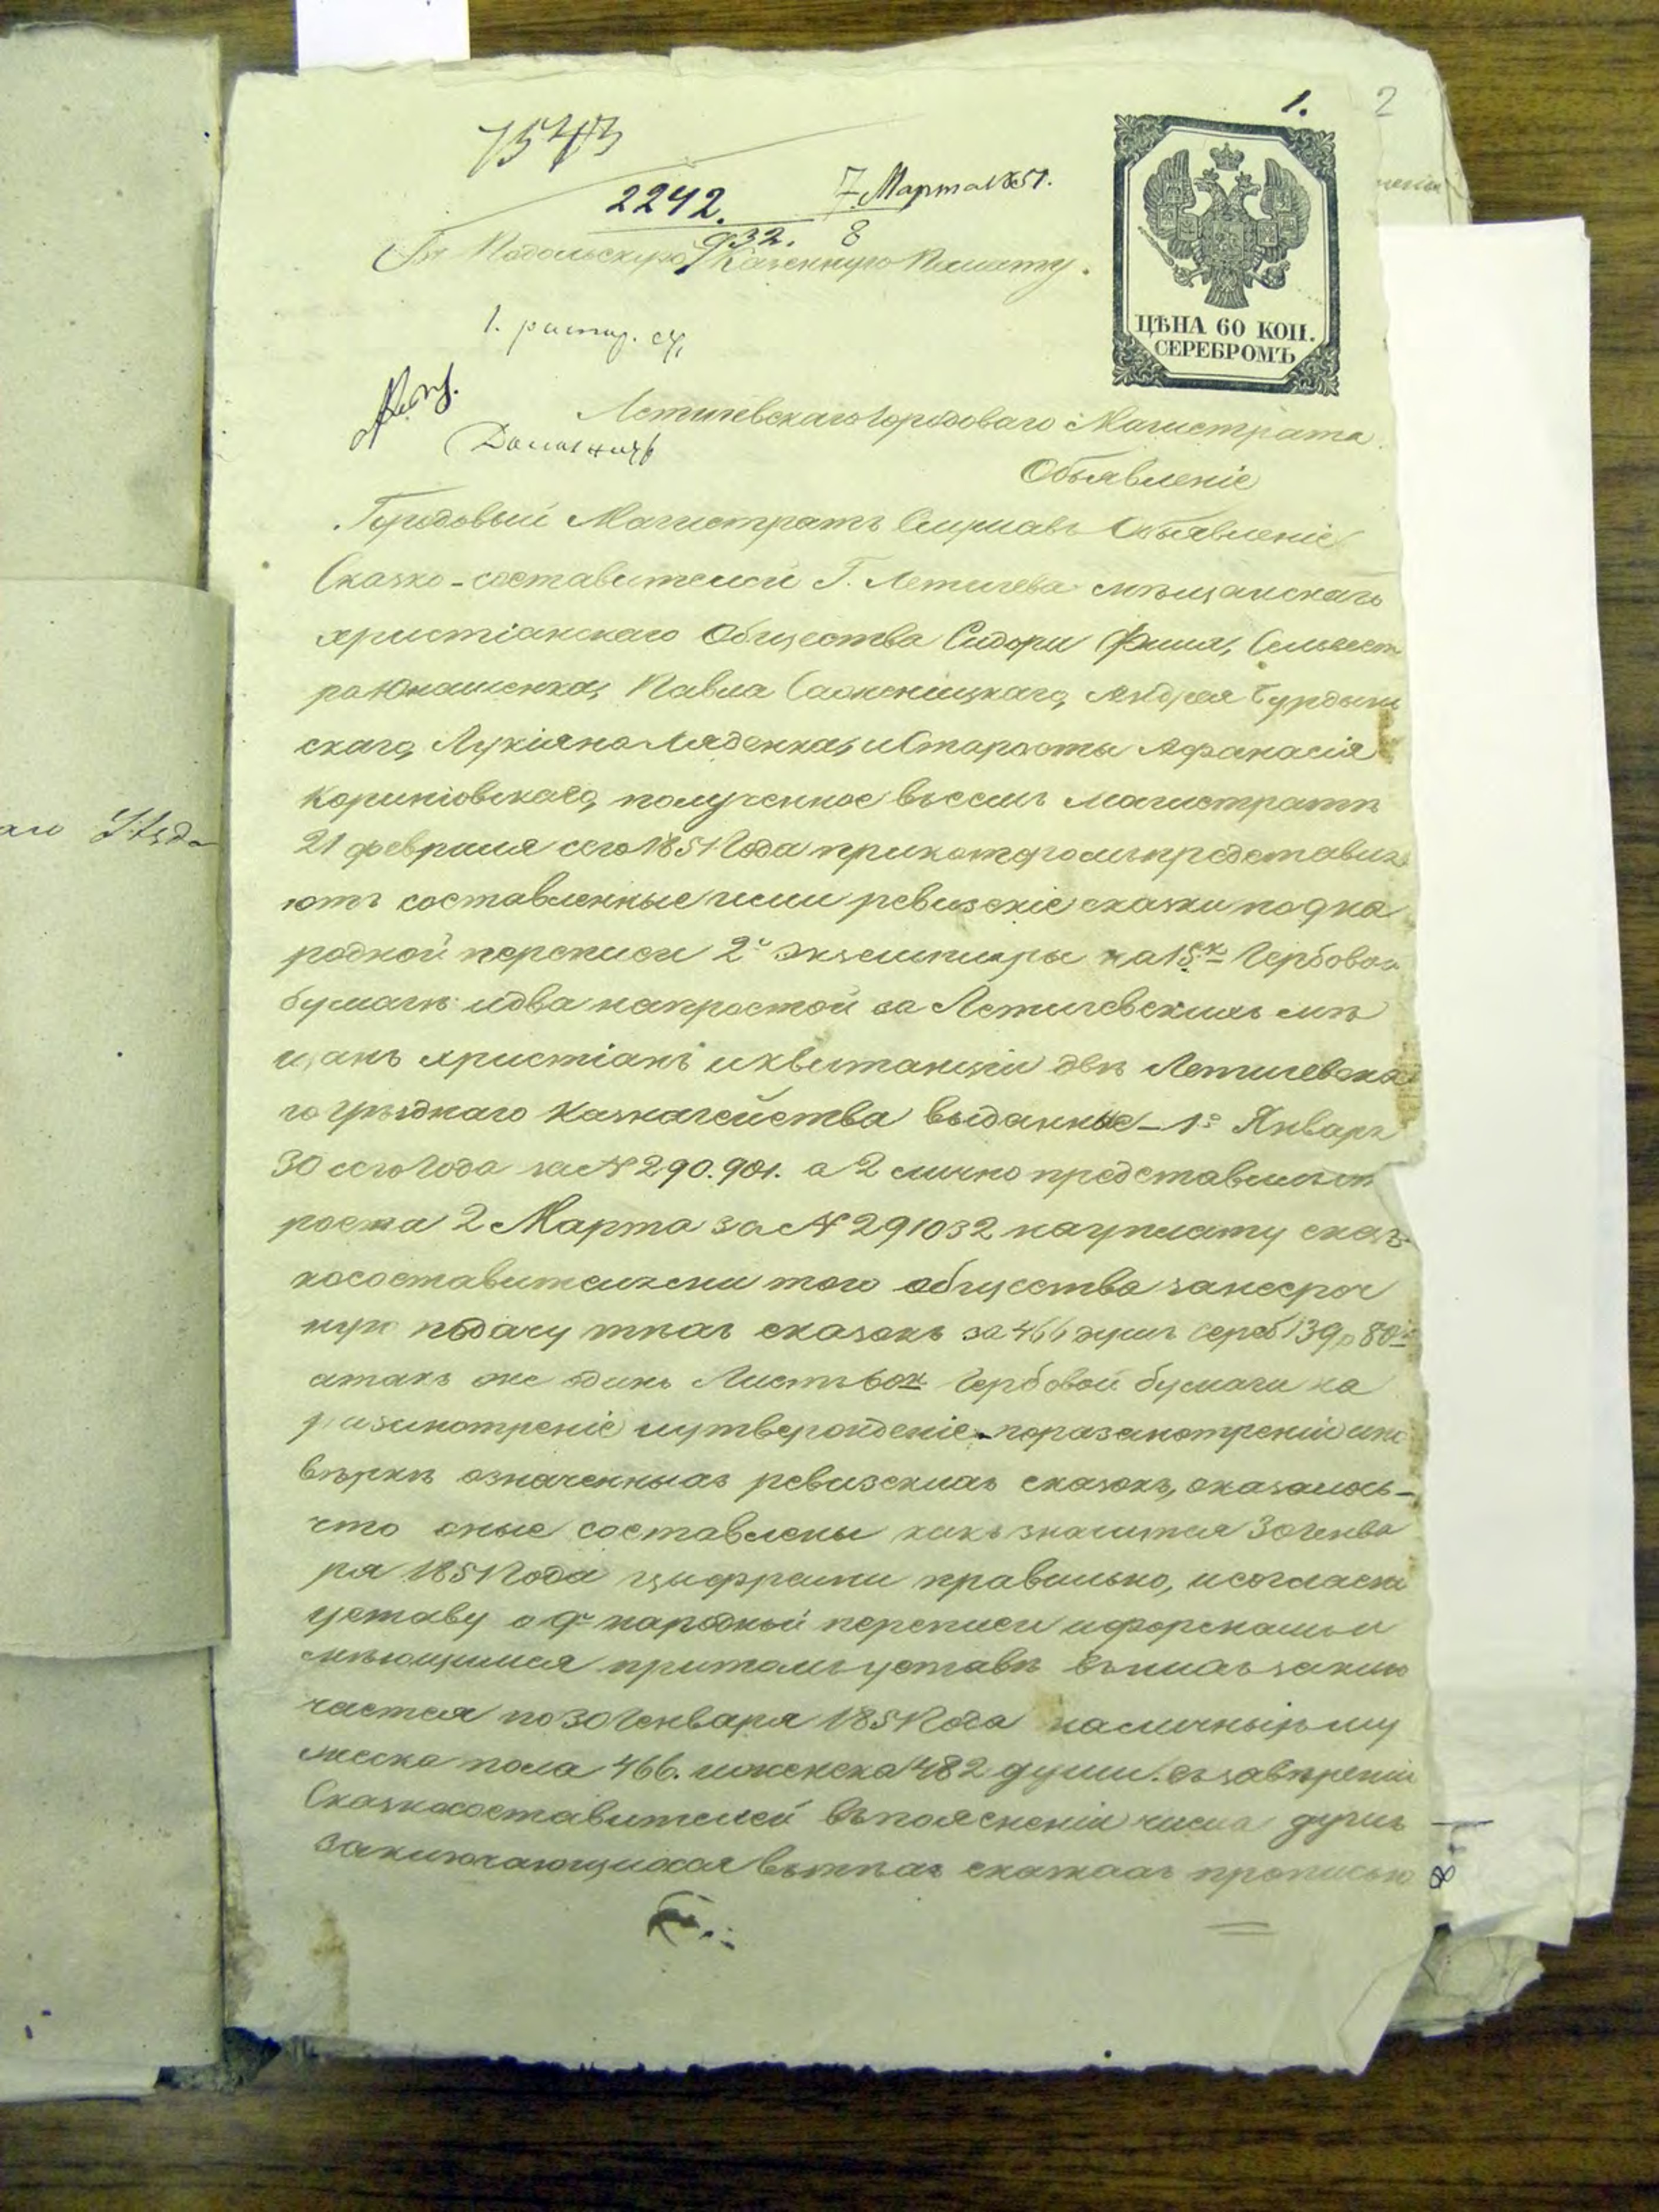 1.
2
7543
2242.
7 Марта 1851.
932. 8
Въ Подольскую Казенную Палату.
ЦѢНА 60 КОП.
СЕРЕБРОМЪ
1.
Летичевскаго Городоваго Магистрата
Объявленіе
Городовый Магистратъ Слушавъ Объявленіе
Сказко-составителей Г. Летичева мѣщанскаго
христіанскаго Общества Сидора Сильвест
ра Юхименка, Павла Андрея
скаго, Лукіяна Ляденка, и Старосты Афанасія
полученное въ семъ Магистратѣ
21 февраля сего 1851 Года при которомъ представля
ютъ составленные ими ревизскіе сказки по 9 на
родной переписи 2 экземпляры на 15 к. Гербовой
бумагѣ и два на простой за Летичевскихъ мѣ
щанъ христіанъ и квитанціи двѣ Летичевска
го Уѣзднаго Казначейства выданные – 1 Январ
30 сего Года за № 290.901. а 2 лично представил ста
роста 2 Марта за № 291032 на уплату сказ
косоставителями того общества за несроч
ную подачу тѣхъ сказокъ за 466 душъ сереб 139 р 80 к
а такъ же одинъ Листъ 60 к Гербовой бумаги на
разсмотреніе и утвержденіе – по разсмотреніи и по
вѣркѣ означенныхъ ревизскихъ сказокъ, оказалось –
что оные составлены какъ значится 30 Генва
ря 1851 Года цыфрами правильно, и согласно
уставу о 9 народной переписи и формами и
меющимися при томъ уставѣ въ нихъ заклю
чается по 30 Генваря 1851 Года наличныхъ му
жеска пола 466. и женска 482 души. съ завѣреніи
Сказкосоставителей въ поясненіи числа душъ
заключающихся въ тѣхъ сказкахъ прописью